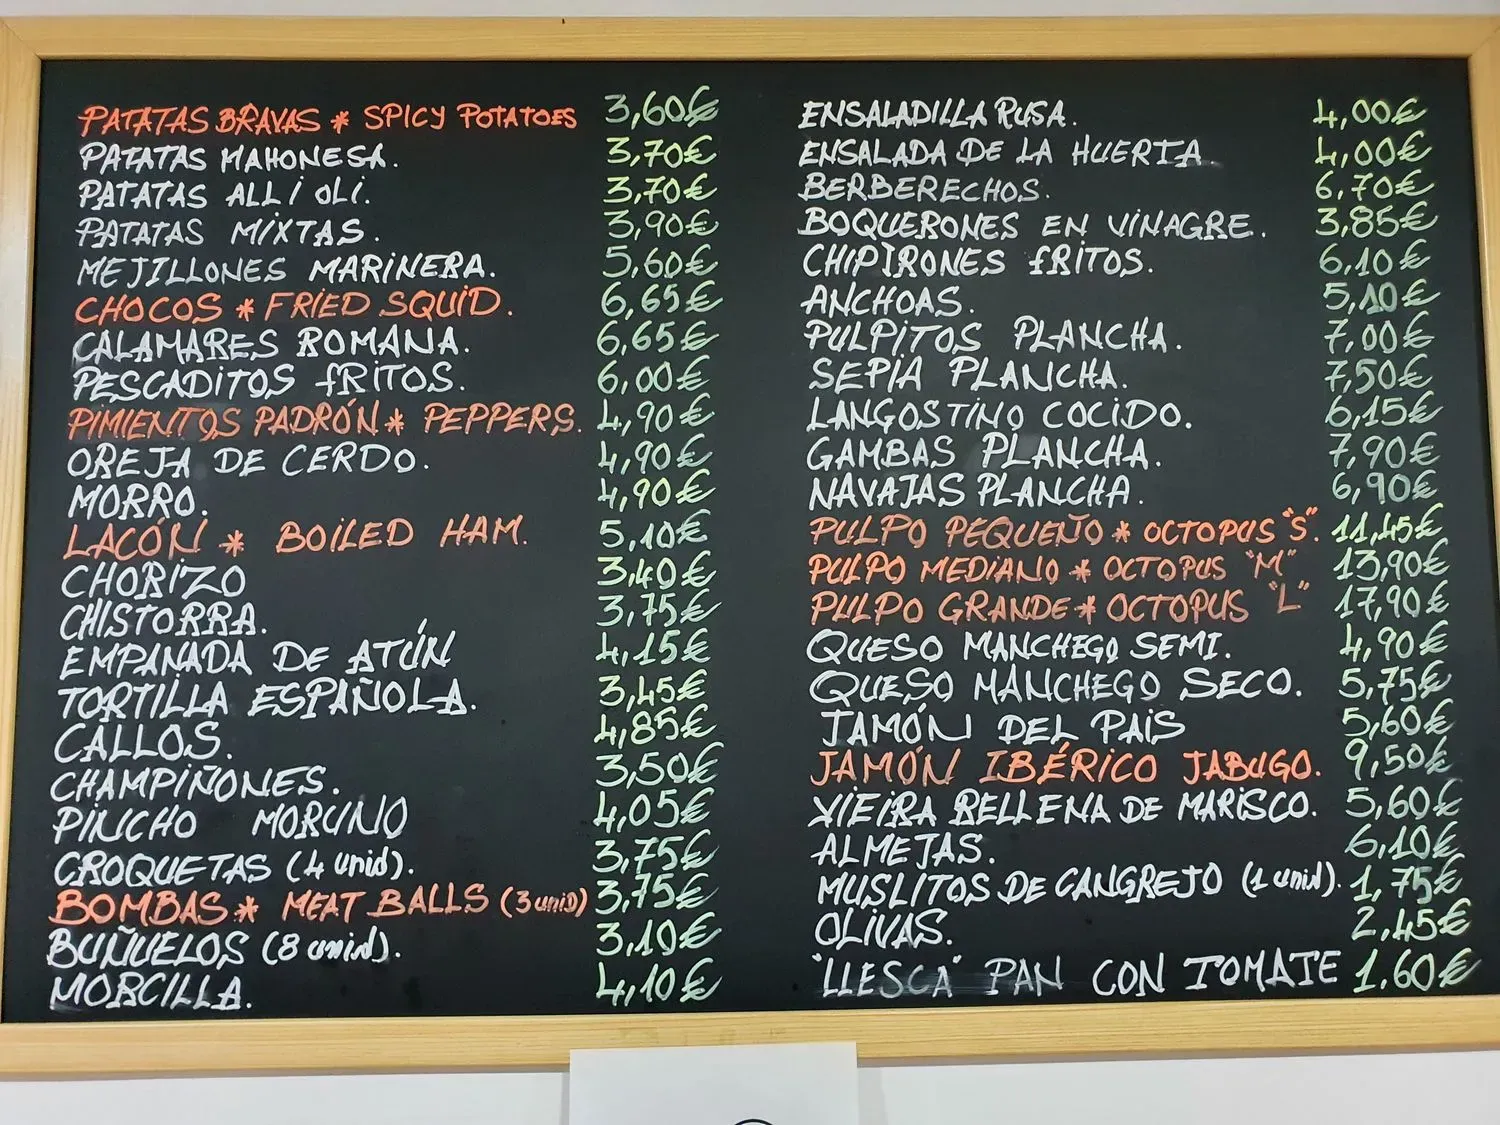 PATATAS BRAVAS * SPICY POTATOES 3,60€
PATATAS MAHONESA. 3,70€
PATATAS ALL I OLI. 3,70€
PATATAS MIXTAS. 3,90€
MEJILLONES MARINERA. 5,60€
CHOCOS * FRIED SQUID. 6,65€
CALAMARES ROMANA. 6,65€
PESCADITOS FRITOS. 6,00€
PIMIENTOS PADRÓN * PEPPERS. 4,90€
OREJA DE CERDO. 4,90€
MORRO. 4,90€
LACÓN * BOILED HAM. 5,10€
CHORIZO 3,40€
CHISTORRA. 3,75€
EMPANADA DE ATÚN 4,15€
TORTILLA ESPAÑOLA. 3,45€
CALLOS. 4,85€
CHAMPIÑONES. 3,50€
PINCHO MORUNO 4,05€
CROQUETAS (4 unid). 3,75€
BOMBAS * MEAT BALLS (3 uniD) 3,75€
BUÑUELOS (8 unid). 3,10€
MORCILLA. 4,10€
ENSALADILLA RUSA. 4,00€
ENSALADA DE LA HUERTA. 4,00€
BERBERECHOS. 6,70€
BOQUERONES EN VINAGRE. 3,85€
CHIPIRONES FRITOS. 6,10€
ANCHOAS. 5,10€
PULPITOS PLANCHA. 7,00€
SEPIA PLANCHA. 7,50€
LANGOSTINO COCIDO. 6,15€
GAMBAS PLANCHA. 7,90€
NAVAJAS PLANCHA. 6,90€
PULPO PEQUEÑO * OCTOPUS "S". 11,45€
PULPO MEDIANO * OCTOPUS "M" 13,90€
PULPO GRANDE * OCTOPUS "L" 17,90€
QUESO MANCHEGO SEMI. 4,90€
QUESO MANCHEGO SECO. 5,75€
JAMÓN DEL PAIS 5,60€
JAMÓN IBÉRICO JABUGO. 9,50€
VIEIRA RELLENA DE MARISCO. 5,60€
ALMEJAS. 6,10€
MUSLITOS DE CANGREJO (1 unid). 1,75€
OLIVAS. 2,45€
"LLESCA" PAN CON TOMATE 1,60€